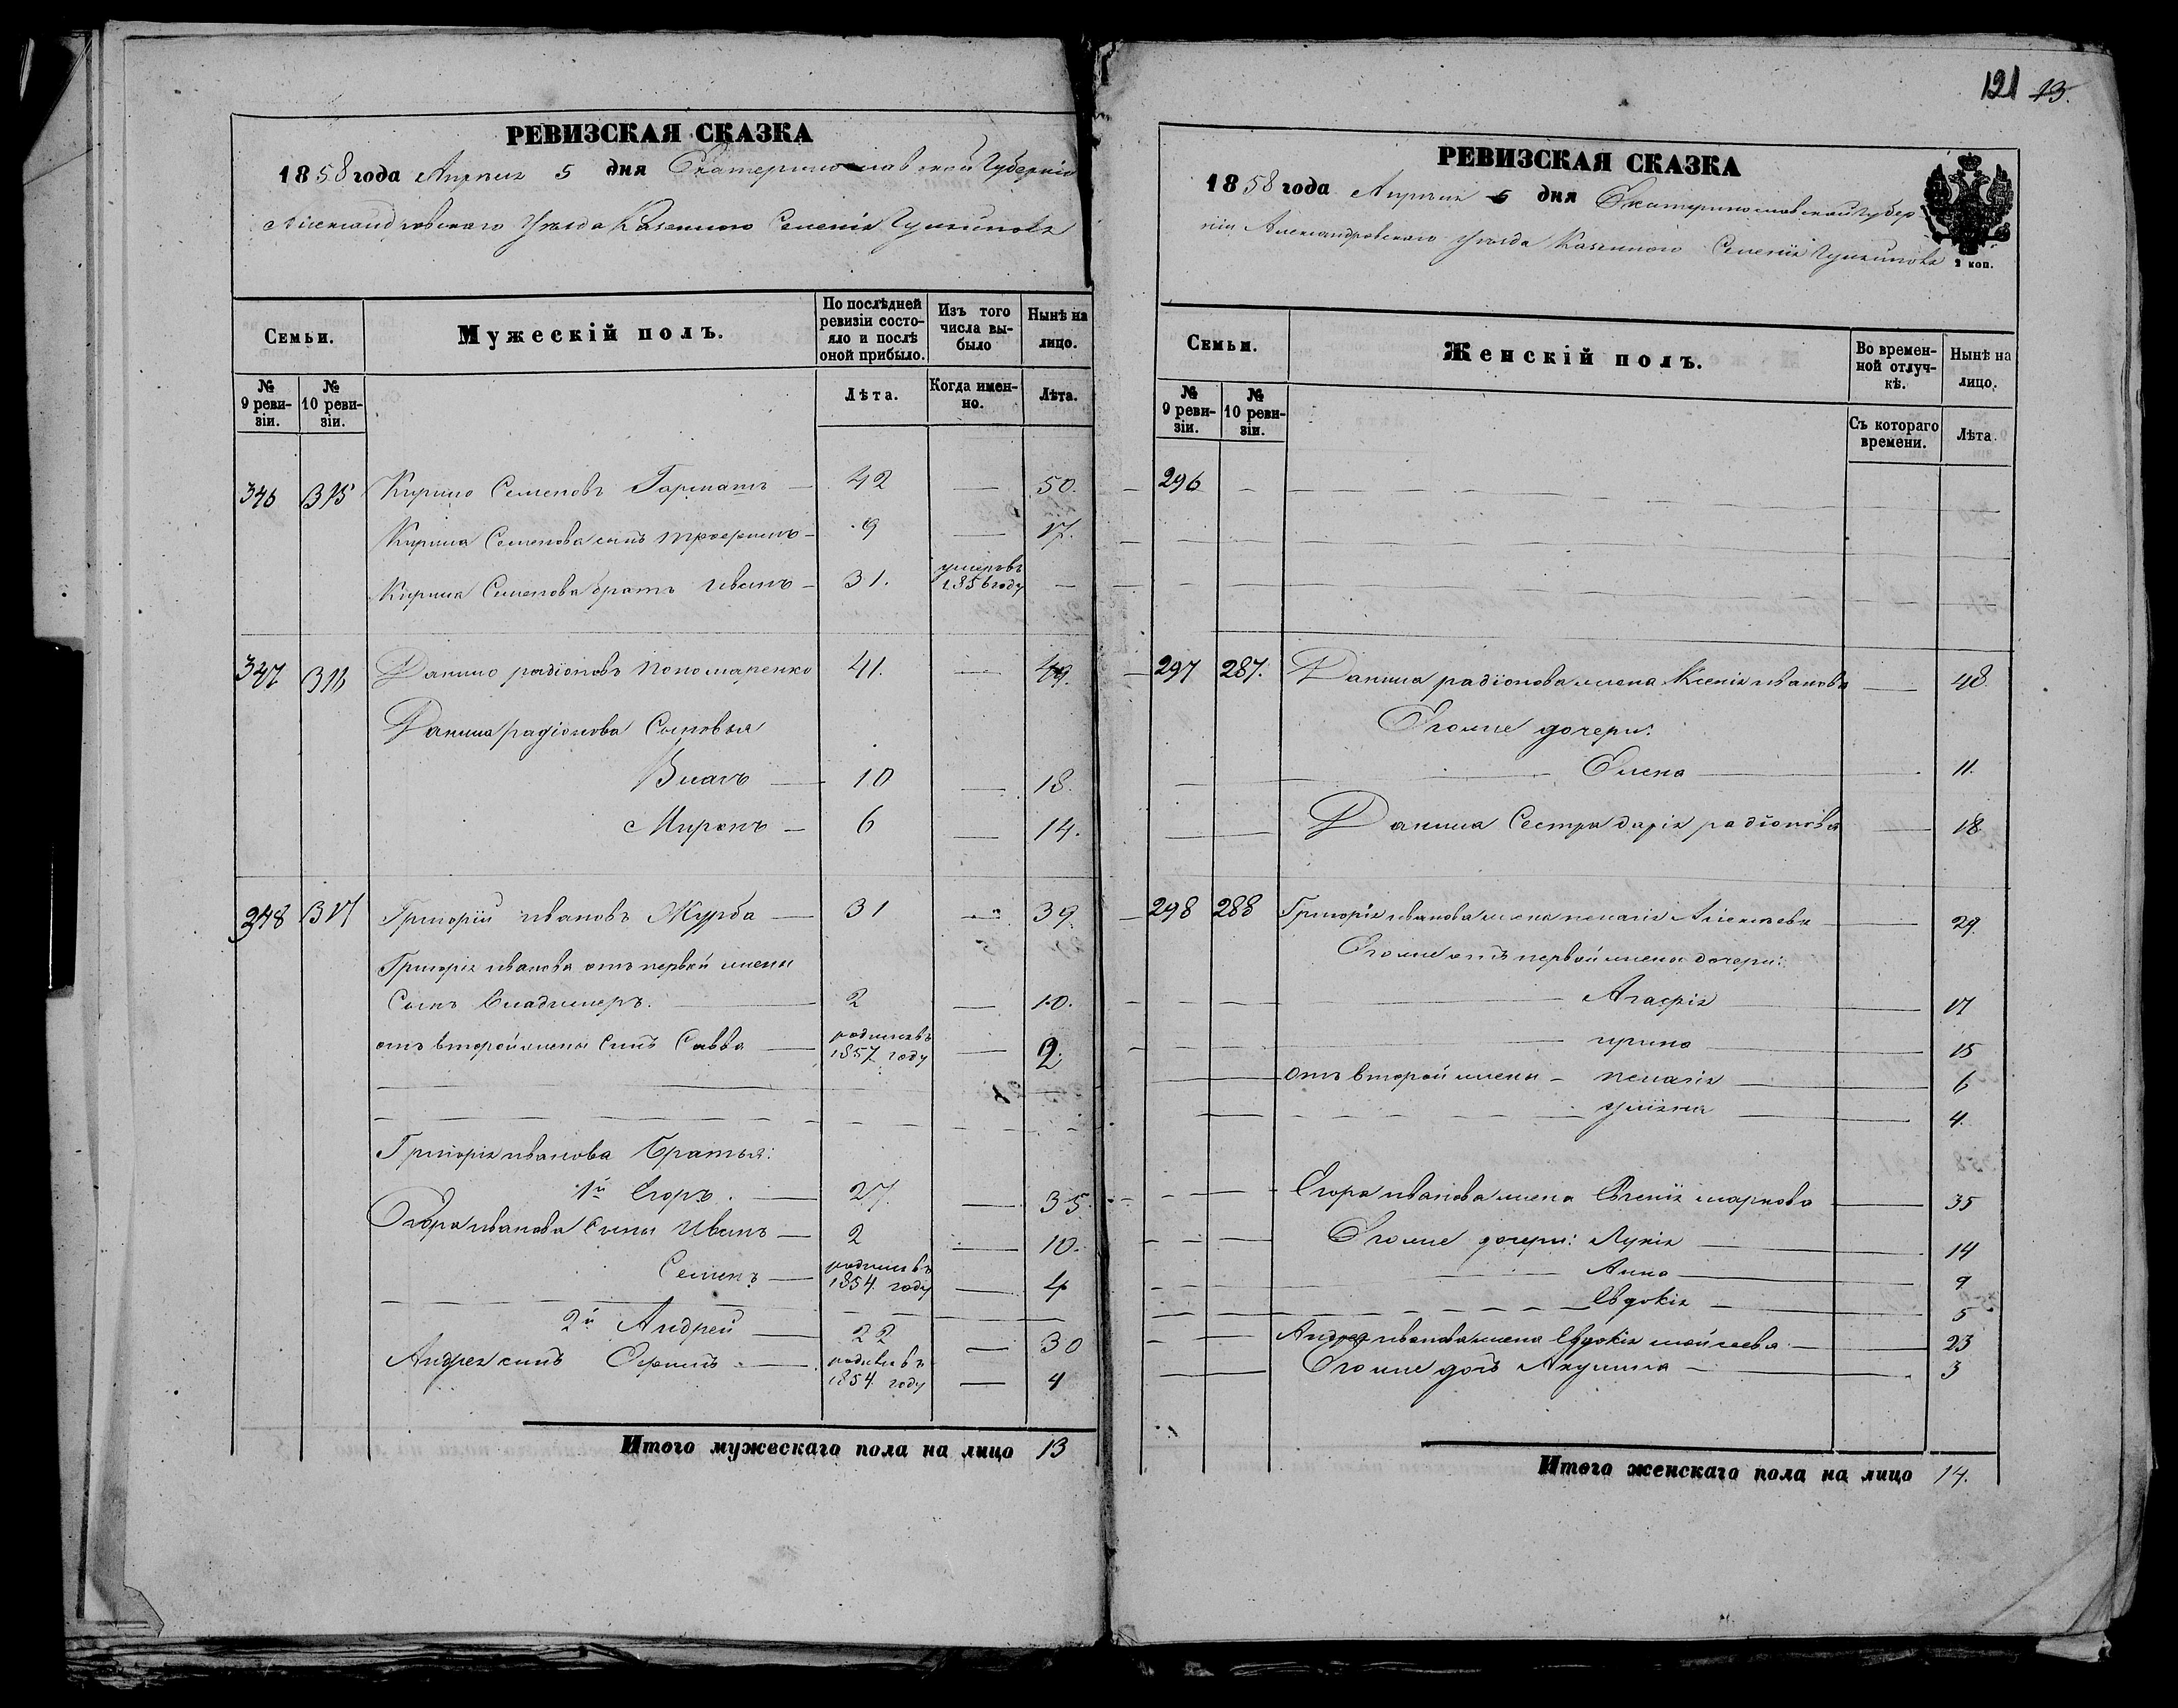 121 13.
РЕВИЗСКАЯ СКАЗКА
1858 года Апреля 5 дня Екатеринославской Губерніи
Александровскаго Уезда Казенного Селенія Гуляйполя
Семьи.
Мужескій полъ.
По послѣдней ревизіи состояло и послѣ оной прибыло.
Изъ того числа выбыло
Нынѣ на лицо.
№ 9 ревизіи.
№ 10 ревизіи.
Лѣта.
Когда именно.
Лѣта.
346 315 Кирило Семеновъ Гармашъ — 42 — 50.
Кирила Семенова сынъ Трофимъ — 9 — 17.
Кирила Семенова братъ Иванъ — 31. умеръ въ 1856 году —
347 316 Данило радіоновъ пономаренко 41. — 49.
Данила радіонова Сыновья
Власъ — 10 — 18.
Миронъ — 6 — 14.
348 317 Григорій ивановъ Журба — 31 — 39.
Григорія иванова отъ первой жены
Сынъ Владимеръ. — 2 — 10.
отъ второй жены Сынъ Савва — родился въ 1857 году — 2.
Григорія иванова братья:
1й Егоръ. — 27. — 35.
Егора иванова Сыны Иванъ — 2 — 10.
Семенъ — родился въ 1854 году — 4
2й Андрей — 22 — 30
Андрея сынъ Ефимъ — родился въ 1854 году — 4
Итого мужескаго пола на лицо 13
РЕВИЗСКАЯ СКАЗКА
1858 года Апреля 5 дня Екатеринославской Губер
ніи Александровскаго Уезда Казенного Селенія Гуляйполя
2 коп.
Семьи.
Женскій полъ.
Во временной отлучкѣ.
Нынѣ на лицо.
№ 9 ревизіи.
№ 10 ревизіи.
Съ котораго времени.
Лѣта.
296
297 287. Данила радіонова жена Ксенія иванова — 48.
Егоже дочери:
Елена — 11.
Данила Сестра дарія радіонова — 18.
298 288 Григорія иванова жена пелагія Алексѣева — 29.
Егоже отъ первой жены дочери:
Агафія — 17
ирина — 15
отъ второй жены — пелагія — 6
уліяна — 4.
Егора иванова жена Евгенія маркова — 35
Егоже дочери: Лукія — 14
Анна — 9
Евдокія — 5
Андрея иванова жена Евдокія мойсеева — 23
Егоже дочь Акулина — 3
Итого женскаго пола на лицо 14.